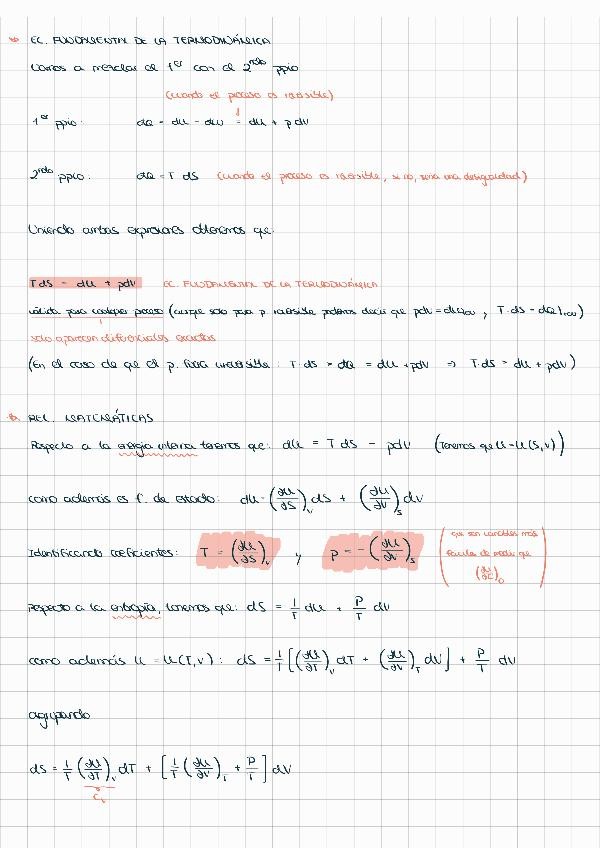 EC. FUNDAMENTAL DE LA TERMODINÁMICA
Vamos a mezclar el 1er con el 2ndo ppio
(cuando el proceso es reversible)
1er ppio: dQ = dU - dW = dU + pdV
2ndo ppio: dQ = T dS (cuando el proceso es reversible, si no, sería una desigualdad)
Uniendo ambas expresiones obtenemos que:
TdS = dU + pdV EC. FUNDAMENTAL DE LA TERMODINÁMICA
válida para cualquier proceso (aunque solo para p. reversible podemos decir que pdV = dW_rev, T·dS = dQ)_rev)
solo aparecen diferenciales exactas
(En el caso de que el p. fuera irreversible: T·dS > dQ = dU + pdV ⇒ T·dS > dU + pdV)
REL. MATEMÁTICAS
Respecto a la energía interna tenemos que: dU = T dS - pdV (Tenemos que U = U(S,V))
como además es f. de estado: dU = (∂U/∂S)_V dS + (∂U/∂V)_S dV
Identificando coeficientes: T = (∂U/∂S)_V y P = -(∂U/∂V)_S
que son variables más
fáciles de medir que
respecto a la entropía, tenemos que: dS = 1/T dU + P/T dV
como además U = U(T,V): dS = 1/T [(∂U/∂T)_V dT + (∂U/∂V)_T dV] + P/T dV
agrupando
dS = 1/T (∂U/∂T)_V dT + [1/T (∂U/∂V)_T + P/T] dV
C_V